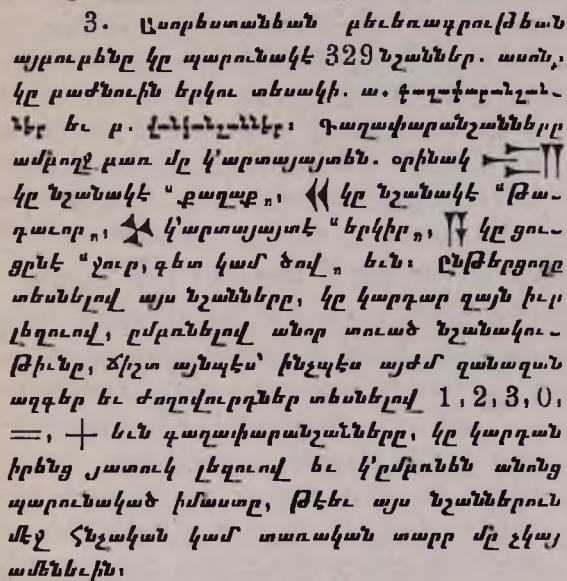 3. Ասորեստանեան բեւեռագրութեան
այբուբենը կը պարունակէ 329 նշաններ. ասոնք
կը բաժնուին երկու տեսակի. ա. գաղափարանշան-
ներ եւ բ. վանկանշաններ։ Գաղափարանշանները
ամբողջ բառ մը կ՚արտայայտեն. օրինակ
կը նշանակէ "քաղաք„, 𒌋𒌋 կը նշանակէ "Թա-
գաւոր„, կ՚արտայայտէ "երկիր„, 𒀀 կը ցու-
ցընէ "ջուր, գետ կամ ծով„ եւն։ Ընթերցողը
տեսնելով այս նշանները, կը կարդար զայն իւր
լեզուով, ըմբռնելով անոր տուած նշանակու-
թիւնը, ճիշտ այնպէս՝ ինչպէս այժմ զանազան
ազգեր եւ ժողովուրդներ տեսնելով 1, 2, 3, 0,
=, + եւն գաղափարանշանները, կը կարդան
իրենց յատուկ լեզուով եւ կ՚ըմբռնեն անոնց
պարունակած իմաստը, թէեւ այս նշաններուն
մէջ հնչական կամ տառական տարր մը չկայ
ամենեւին։